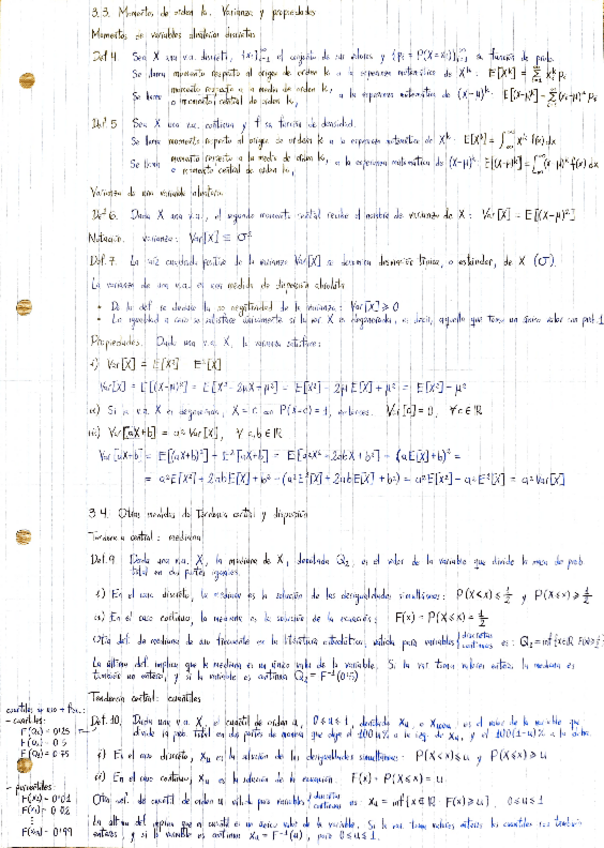 3.3. Momentos de orden k. Varianza y propiedades
Momentos de variables aleatorias discretas
Def 4. Sea X una v.a. discreta, {xi}i=1^∞ el conjunto de sus valores y {pi = P(X=xi)}i=1^∞ su función de prob.
Se llama momento respecto al origen de orden k a la esperanza matemática de X^k. E[X^k] = Σ xi^k pi
Se llama momento respecto a la media de orden k, o momento central de orden k, a la esperanza matemática de (X-μ)^k. E[(X-μ)^k] = Σ (xi-μ)^k pi
Def. 5 Sea X una v.a. continua y f su función de densidad.
Se llama momento respecto al origen de orden k a la esperanza matemática de X^k. E[X^k] = ∫ x^k f(x)dx
Se llama momento respecto a la media de orden k, o momento central de orden k, a la esperanza matemática de (X-μ)^k. E[(X-μ)^k] = ∫ (x-μ)^k f(x)dx
Varianza de una variable aleatoria
Def 6. Dada X una v.a., el segundo momento central recibe el nombre de varianza de X: Var[X] = E[(X-μ)²]
Notación. varianza: Var[X] ≡ σ²
Def. 7. La raíz cuadrada positiva de la varianza Var[X] se denomina desviación típica, o estándar, de X (σ).
La varianza de una v.a. es una medida de dispersión absoluta
• De la def se deduce la no negatividad de la varianza: Var[X] ⩾ 0
• La igualdad a cero se satisface únicamente si la var X es degenerada, es decir, aquella que toma un único valor con prob. 1
Propiedades. Dada una v.a. X, la varianza satisface:
i) Var[X] = E[X²] - E²[X]
Var[X] = E[(X-μ)²] = E[X² - 2μX + μ²] = E[X²] - 2μE[X] + μ² = E[X²] - μ²
ii) Si la v.a. X es degenerada, X = c con P(X=c) = 1, entonces Var[c] = 0, ∀c∈ℝ
iii) Var[aX+b] = a² Var[X], ∀ a,b ∈ ℝ
Var[aX+b] = E[(aX+b)²] - E²[aX+b] = E[a²X² + 2abX + b²] - (aE[X]+b)² =
= a²E[X²] + 2abE[X] + b² - (a²E²[X] + 2abE[X] + b²) = a²E[X²] - a²E²[X] = a²Var[X]
3.4. Otras medidas de tendencia central y dispersión
Tendencia central: mediana
Def. 9 Dada una v.a. X, la mediana de X, denotada Q₂, es el valor de la variable que divide la masa de prob
total en dos partes iguales.
i) En el caso discreto, la mediana es la solución de las desigualdades simultáneas: P(X<x) ⩽ 1/2 y P(X⩽x) ⩾ 1/2
ii) En el caso continuo, la mediana es la solución de la ecuación: F(x) = P(X⩽x) = 1/2
Otra def. de mediana de uso frecuente en la literatura estadística, válida para variables {discretas continuas es: Q₂ = inf{x∈ℝ: F(x)⩾1/2}
La última def. implica que la mediana es un único valor de la variable. Si la var toma valores enteros, la mediana es
también un entero, y si la variable es continua Q₂ = F⁻¹(0'5)
Tendencia central: cuantiles
Def. 10. Dada una v.a. X, el cuantil de orden u, 0⩽u⩽1, denotado xu, o x100u, es el valor de la variable que
divide la prob total en dos partes de manera que deja el 100u% a la izq. de xu, y el 100(1-u)% a la dcha.
i) En el caso discreto, xu es la solución de las desigualdades simultáneas: P(X<x)⩽u y P(X⩽x) ⩾ u
ii) En el caso continuo, xu es la solución de la ecuación. F(x) = P(X⩽x) = u
Otra def. de cuantil de orden u válida para variables {discretas continuas es: xu = inf{x∈ℝ: F(x) ⩾ u}, 0⩽u⩽1
La última def implica que el cuantil es un único valor de la variable. Si la var toma valores enteros los cuantiles son también
enteros, y si la variable es continua xu = F⁻¹(u), para 0⩽u⩽1.
cuantiles
- cuartiles:
F(Q₁) = 0'25
F(Q₂) = 0'5
F(Q₃) = 0'75
- percentiles:
F(x₁) = 0'01
F(x₂) = 0'02
⋮
F(x₉₉) = 0'99